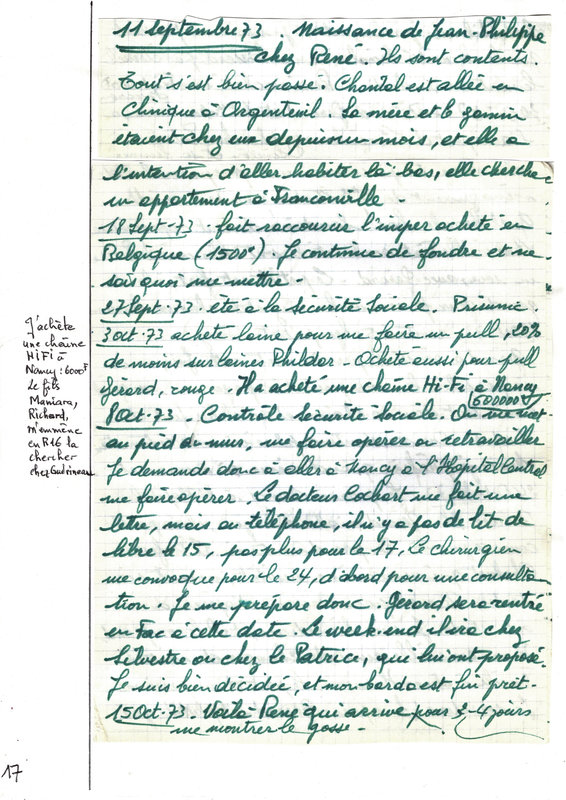 11 Septembre 73. Naissance de Jean-Philippe
chez René. Ils sont contents.
Tout s'est bien passé. Chantal est allée en
clinique à Argenteuil. La mère et le gamin
étaient chez eux depuis un mois, et elle a
l'intention d'aller habiter là-bas, elle cherche
un appartement à Franconville -
18 Sept. 73. fait raccourcir l'imper acheté en
Belgique (1500F). Je continue de fondre et ne
sais quoi me mettre -
27 Sept. 73 été à la sécurité Sociale. Prisunic.
3 oct. 73 acheté laine pour me faire un pull, 20%
de moins sur laines Phildar. Acheté aussi pour pull
Gérard, rouge. Il a acheté une chaîne Hi-Fi à Nancy
(600000F)
8 Oct. 73. Contrôle Sécurité Sociale. On me met
au pied du mur, me faire opérer ou retravailler
Je demande donc à aller à Nancy à l'Hôpital Central
me faire opérer. Le docteur me fait une
lettre, mais au téléphone, il n'y a pas de lit de
libre le 15, pas plus pour le 17, Le chirurgien
me convoque pour le 24, d'abord pour une consulta
tion. Je me prépare donc. Gérard sera rentré
en Fac à cette date. Le week-end il ira chez
Silvestre ou chez le Patrice, qui lui ont proposé.
Je suis bien décidée, et mon barda est fin prêt -
15 Oct. 73. Voilà René qui arrive pour 3-4 jours
me montrer le gosse -
J'achète
une chaîne
HiFi à
Nancy : 6000F
Le fils
Maniara,
Richard,
m'emmène
en R16 la
chercher
chez Guérineau
17